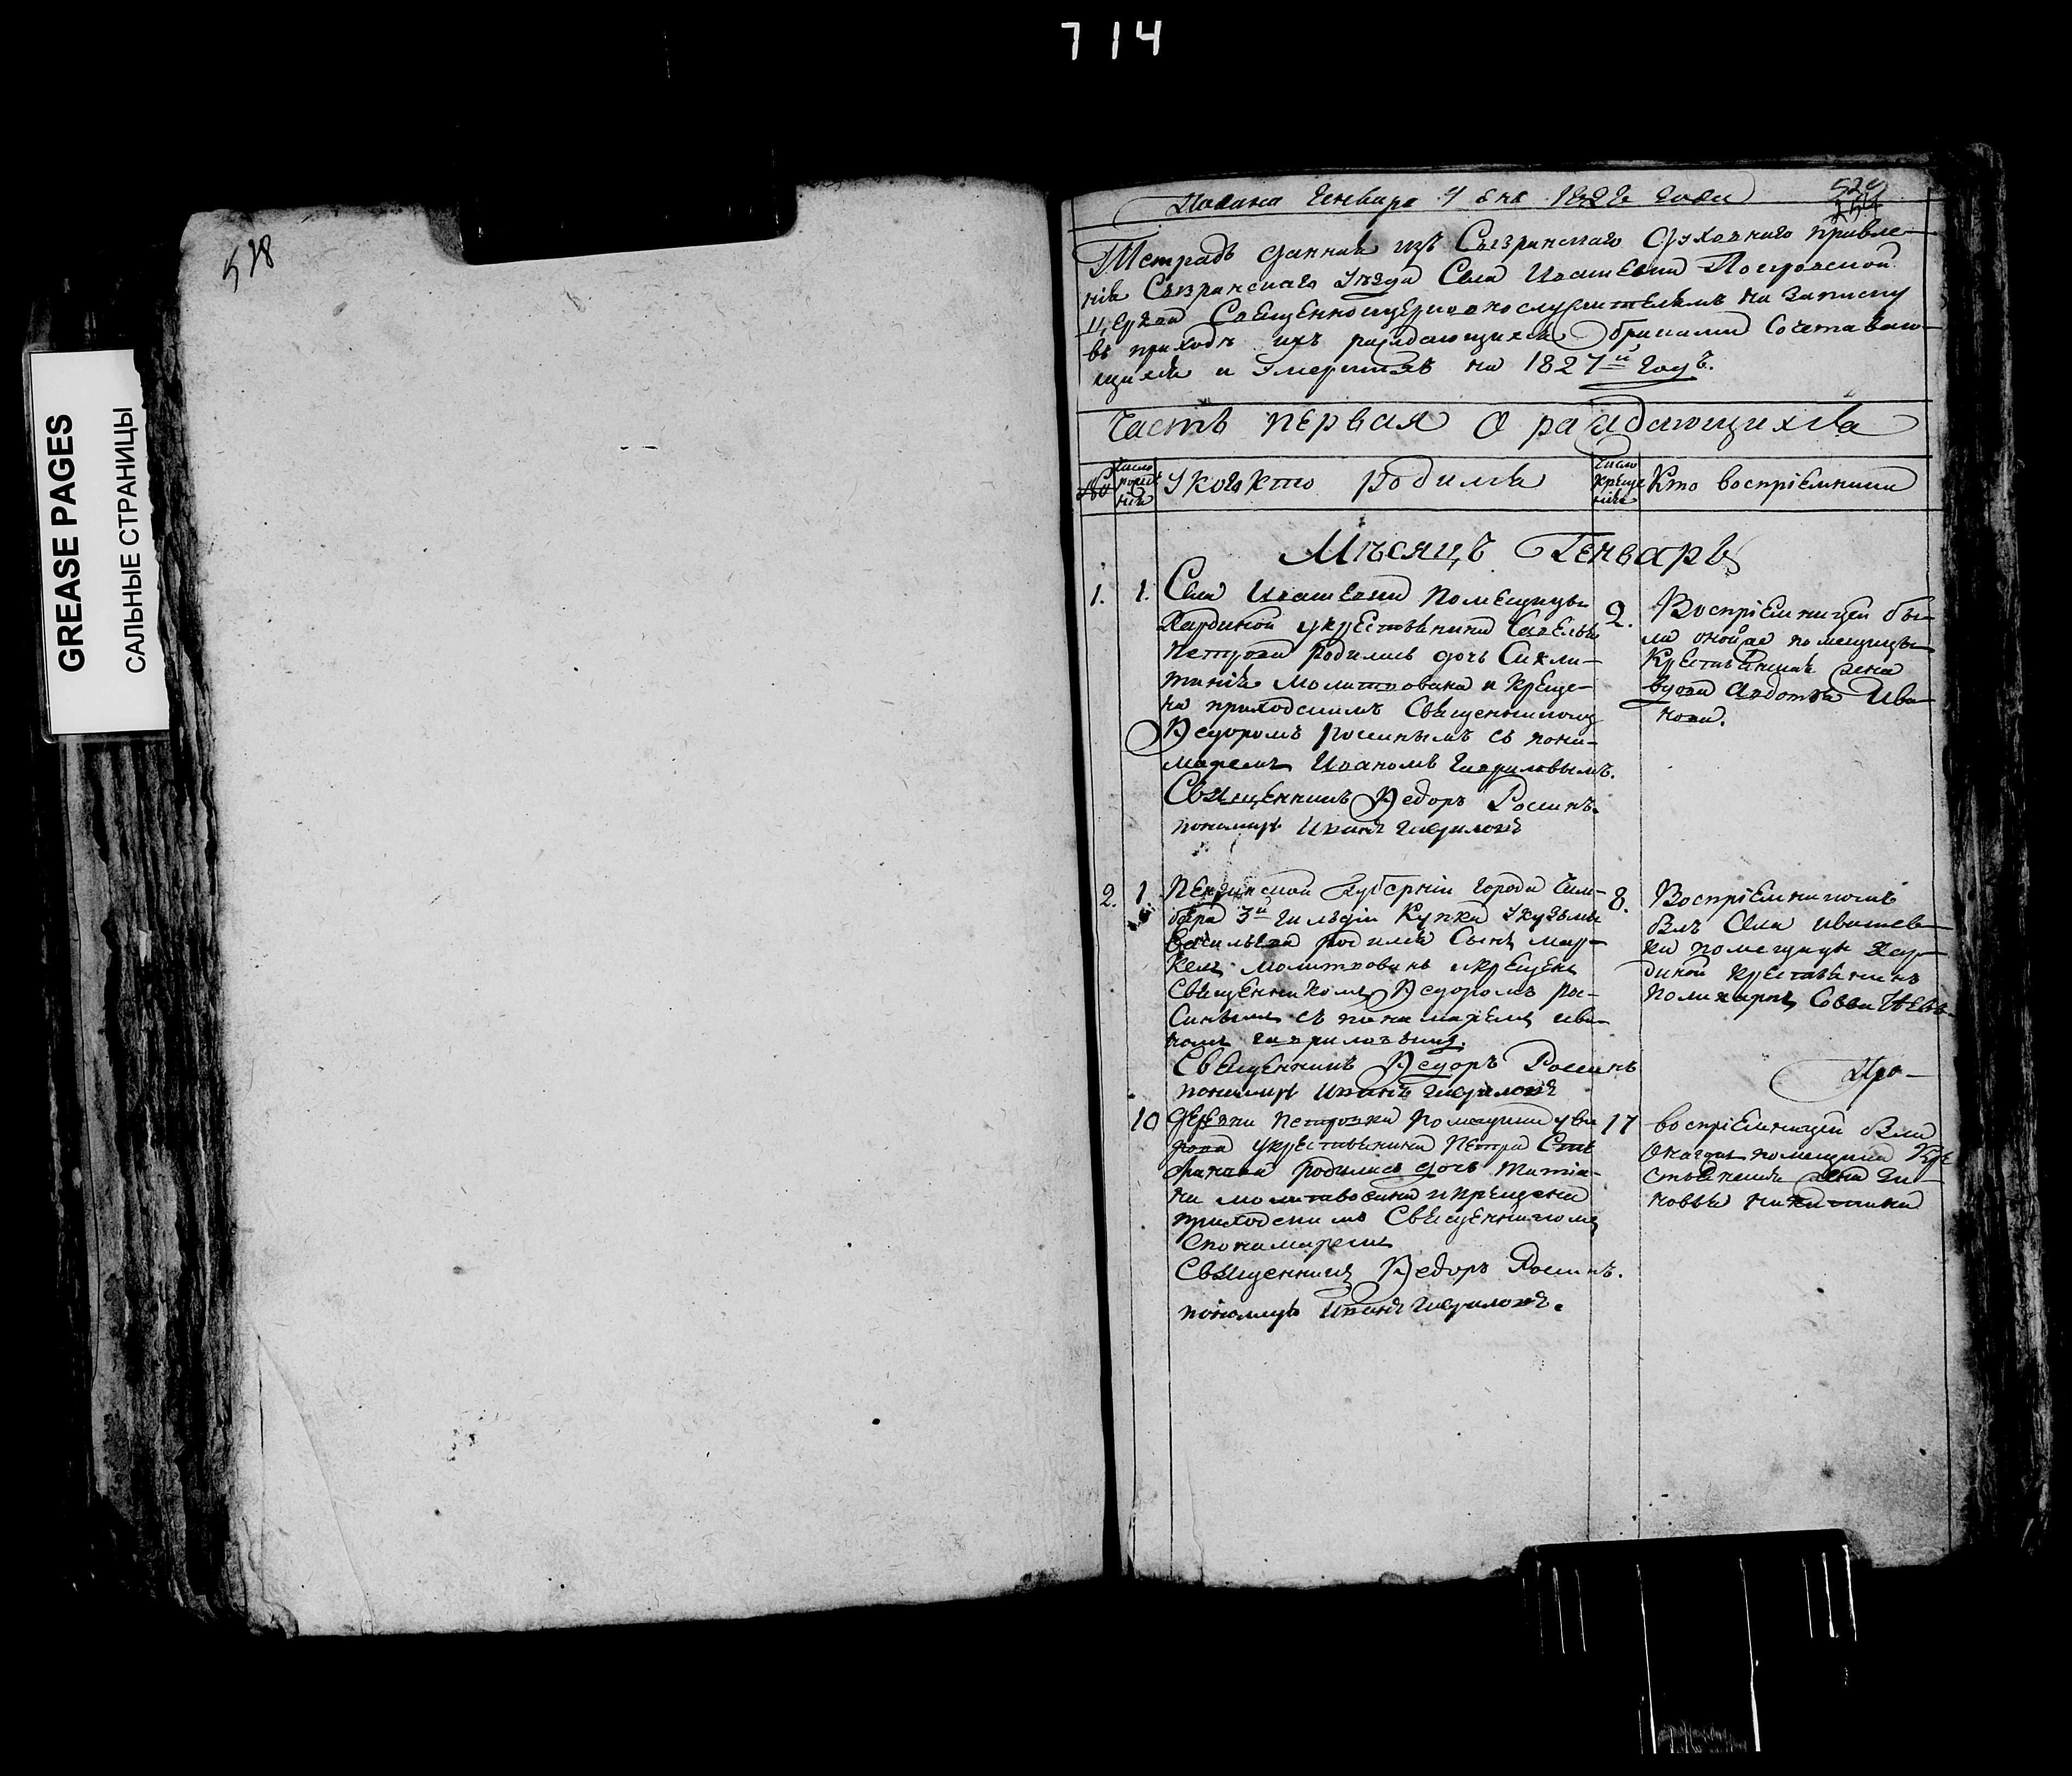 714
518
GREASE PAGES
САЛЬНЫЕ СТРАНИЦЫ
Генваря дня года
Тетрадь данная изъ Сызранскаго Духовнаго правле-
нія Сызранскаго уѣзда Села Ивашевки Покровской
церкви Священноцерковнослужителямъ на записку
въ приходѣ ихъ раждающихся браками Сочетаваю-
щихся и умершихъ на 1827й годъ.
Часть первая О раждающихся
№
Число рожденія
У кого кто родился
Число крещенія
Кто воспріемники
Мѣсяцъ Генварь
1. 1. Села Ивашевки помещицы
Хардиной у крестьянина Савелья
Петрова родилась дочь Сикли-
тикія молитвована и креще-
на приходскимъ Священникомъ
Ѳедоромъ Росинымъ съ поно-
маремъ Иваномъ Гавриловымъ.
Священникъ Ѳедоръ Росинъ.
пономарь Иванъ Гавриловъ
2. Воспріемницей бы-
ла оной же помещицы
Крестьянская жена
вдова Авдотья Ива-
нова.
2. 1. Пензенской Губерніи города Чем-
бара 3й гильдіи Купца у Кузьмы
Васильева родился Сынъ Мар-
келъ молитвованъ и крещенъ
Священникомъ Ѳедоромъ Ро-
синымъ съ пономаремъ Ива-
номъ Гавриловымъ.
Священникъ Ѳедоръ Росинъ
пономарь Иванъ Гавриловъ
8. Воспріемникомъ
былъ Села Ивашев-
ки помещицы Хар-
диной крестьянинъ
Поликарпъ Савватѣевъ
10 деревни Петровки помещика
у крестьянина Петра Сте
фанова родилась дочь Татья-
на молитвована и крещена
приходскимъ Священникомъ
с пономаремъ
Священникъ Ѳедоръ Росинъ.
пономарь Иванъ Гавриловъ.
17 воспріемницей была
онагожъ помещика Кре
стьянина жена
Никитина